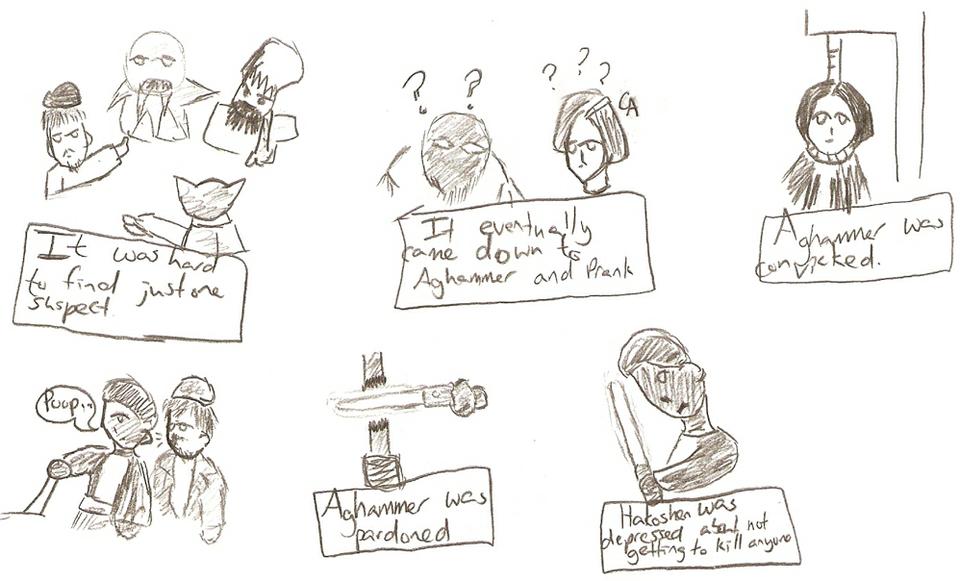 It was hard
to find just one
suspect.
? ?
? ? ?
CA
It eventually
came down to
Aghammer and Prank
Aghammer was
convicked.
Poop...
Aghammer was
pardoned
Hakoshen was
depressed about not
getting to kill anyone